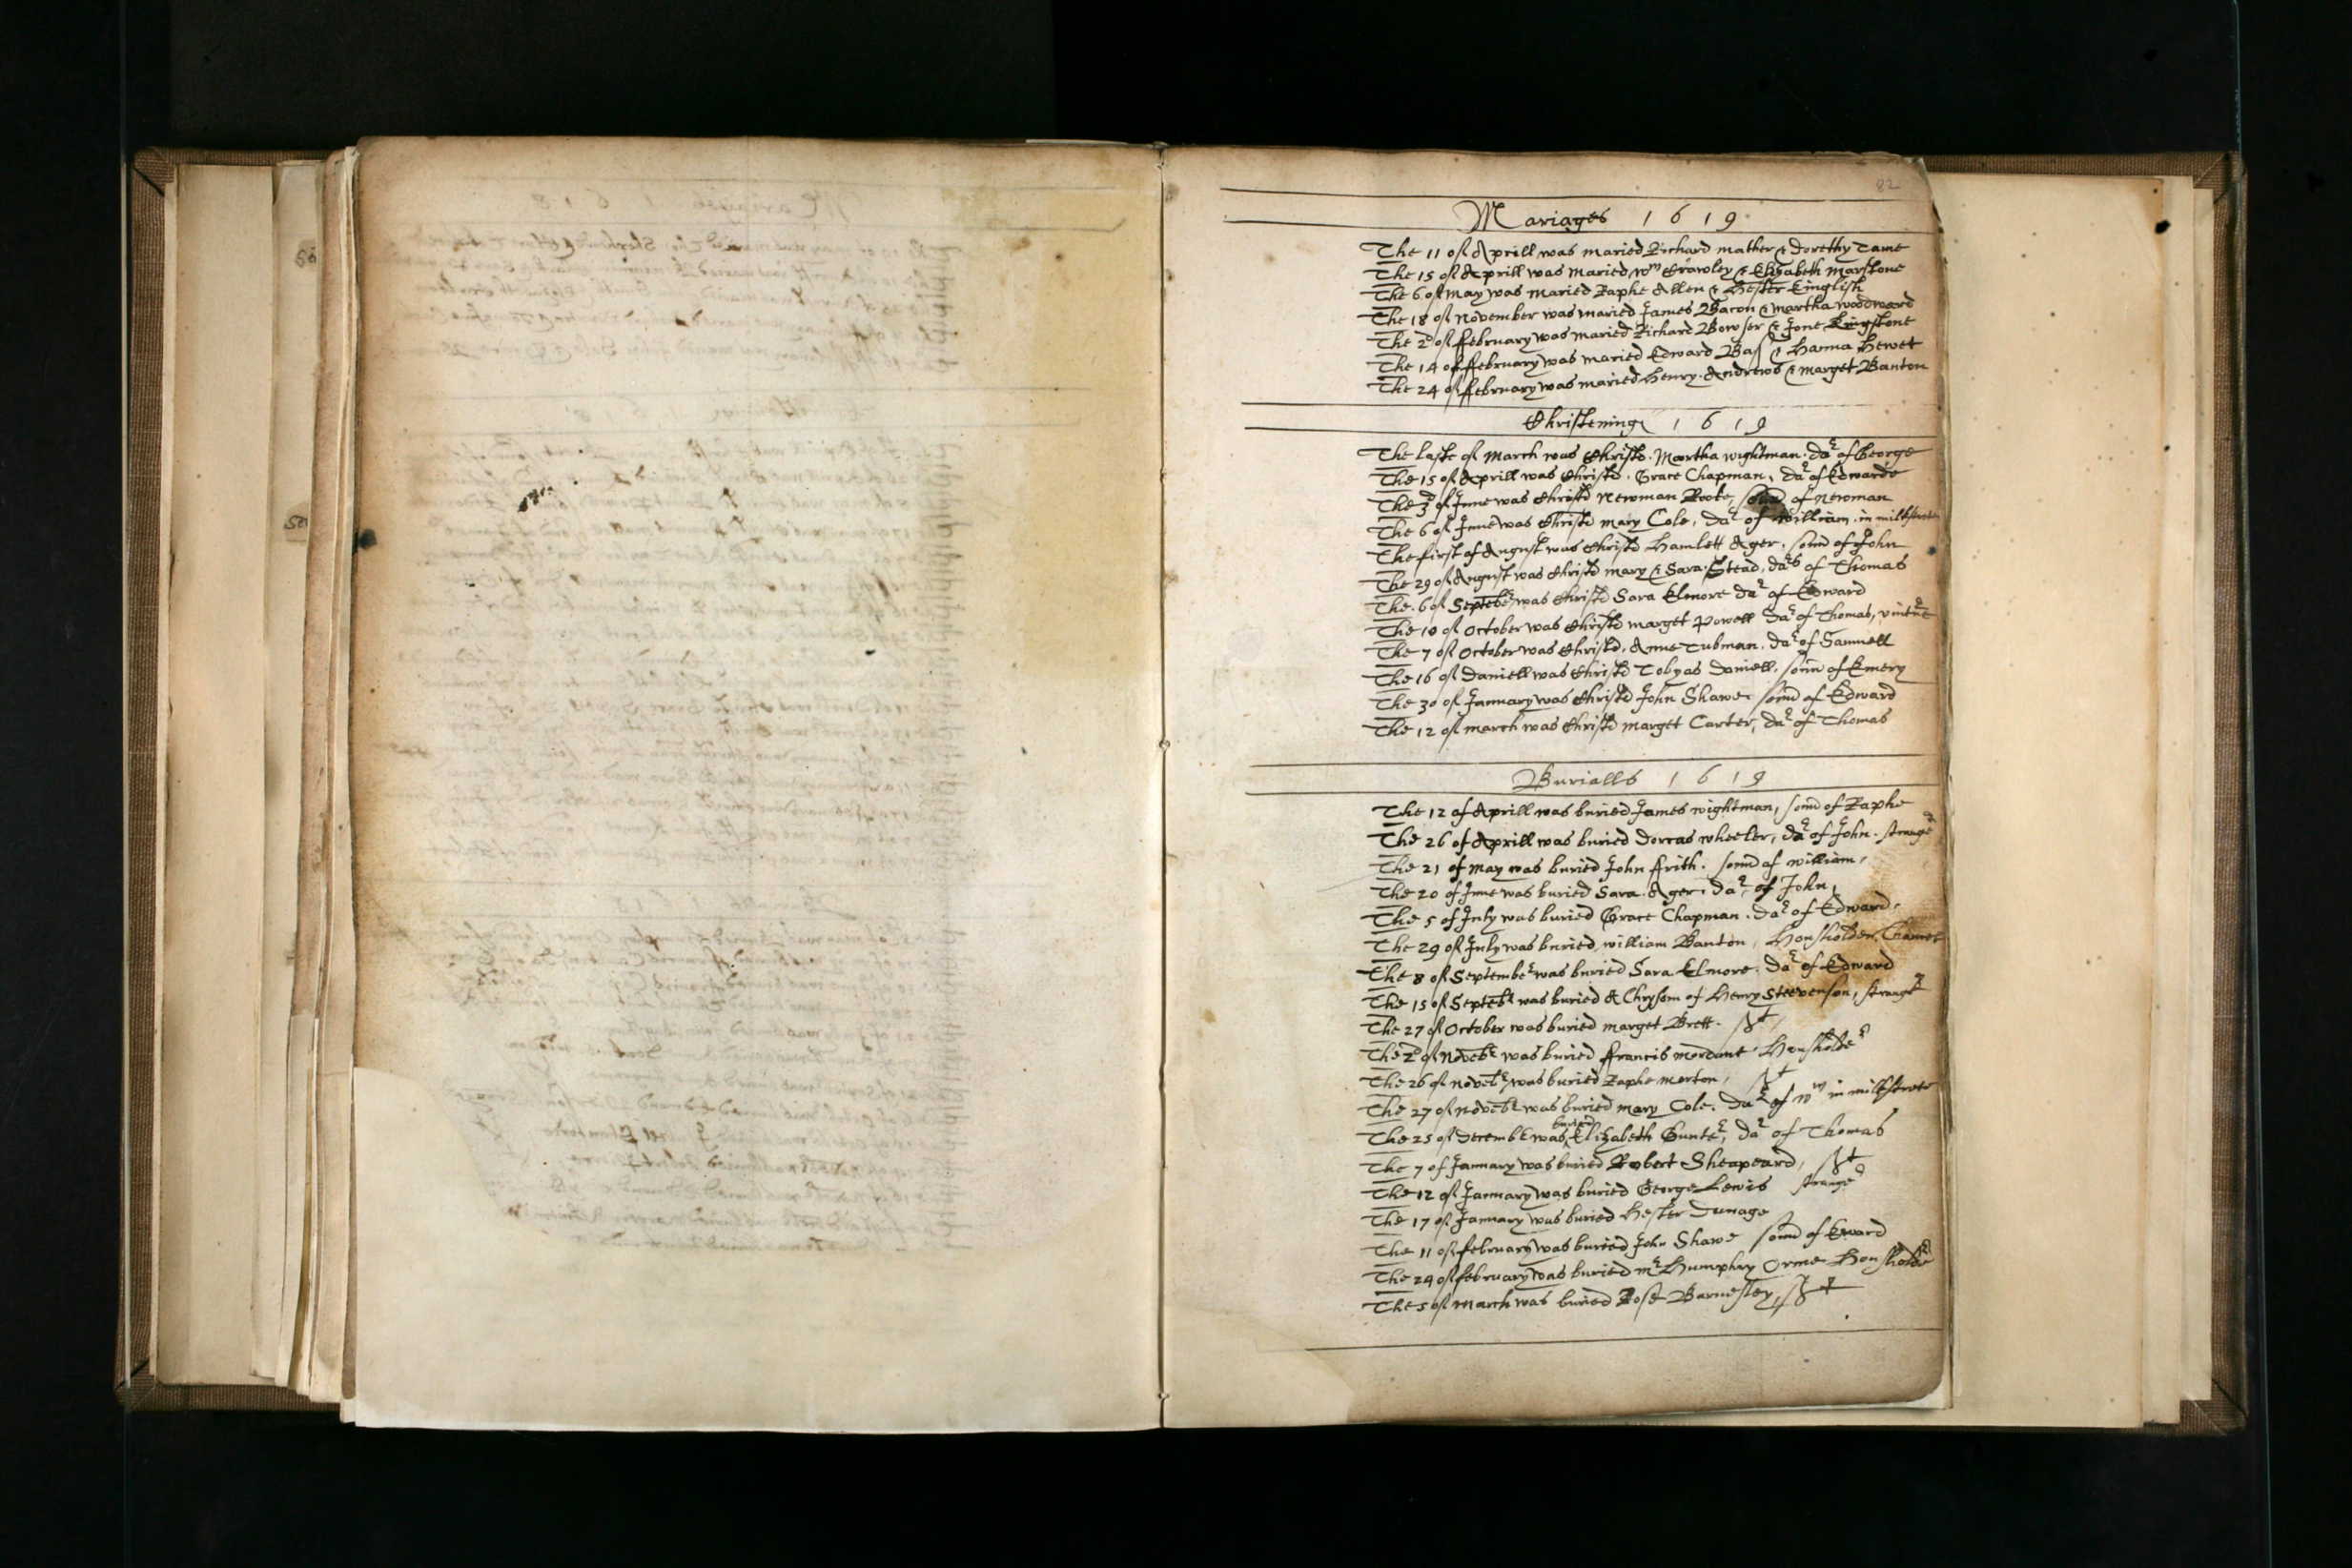 82
Mariages 1619
The 11 of Aprill was maried Richard mather & Dorethy Tame
The 15 of Aprill was maried wm Crawley & Elizabeth Marstone
The 6 of May was maried Raphe Allen & Hester Kinglish
The 18 of November was maried James Bacon & martha woodward
The 2d of february was maried Richard Bowser & Jone Kingstone
The 14 of february was maried Edward Bass & Hanna Hewet
The 24 of february was maried Henry Andrews & marget Banton
Christening 1619
The laste of March was Christd. Martha wightman. dar of George
The 15 of Aprill was Christd. Grace Chapman, dar of Edwarde
The 3d of June was Christd Newman Rooke, sonn of Newman
The 6 of June was Christd mary Cole, dar of William. in milkstreete
The first of August was Christd Hamlett Ager. sonn of John
The 29 of August was Christd mary & Sara Stead, dars of Thomas
The 6 of Septeber was Christd Sara Elmore dar of Edward
The 10 of October was Christd marget Powell dar of Thomas, vintner
The 7 of October was Christd. Anne Tubman. dar of Samuell
The 16 of Daniell was Christd Tobyas Daniell. sonn of Emery
The 30 of January was Christd John Shawe sonn of Edward
The 12 of march was Christd marget Carter, dar of Thomas
Burialls 1619
The 12 of Aprill was buried James wightman, sonn of Raphe
The 26 of Aprill was buried Dorcas wheeler, dar of John. stranger
The 21 of May was buried John ffrith. sonn of william,
The 20 of June was buried Sara Ager. dar of John,
The 5 of July was buried Grace Chapman. dar of Edward,
The 29 of July was buried, william Banton, Housholder
The 8 of September was buried Sara Elmore. dar of Edward
The 15 of Septebr was buried A Chrysom of Henry Steevenson, stranger
The 27 of October was buried marget Brett.
The 2d of Novebr was buried ffrancis mordant Housholder
The 26 of Novebr was buried Raphe merton,
The 27 of Novebr was buried mary Cole. dar of wm in milkstrete
The 25 of Decembr was buried Elizabeth Gunter, dar of Thomas
The 7 of January was buried Robert Sheapeard,
The 12 of January was buried George Lewis stranger
The 17 of January was buried Hester Dunage
The 11 of february was buried John Shawe sonn of Eward
The 24 of february was buried mr Humphry Orme Housholder
The 5 of March was buried Rose Barnesley,